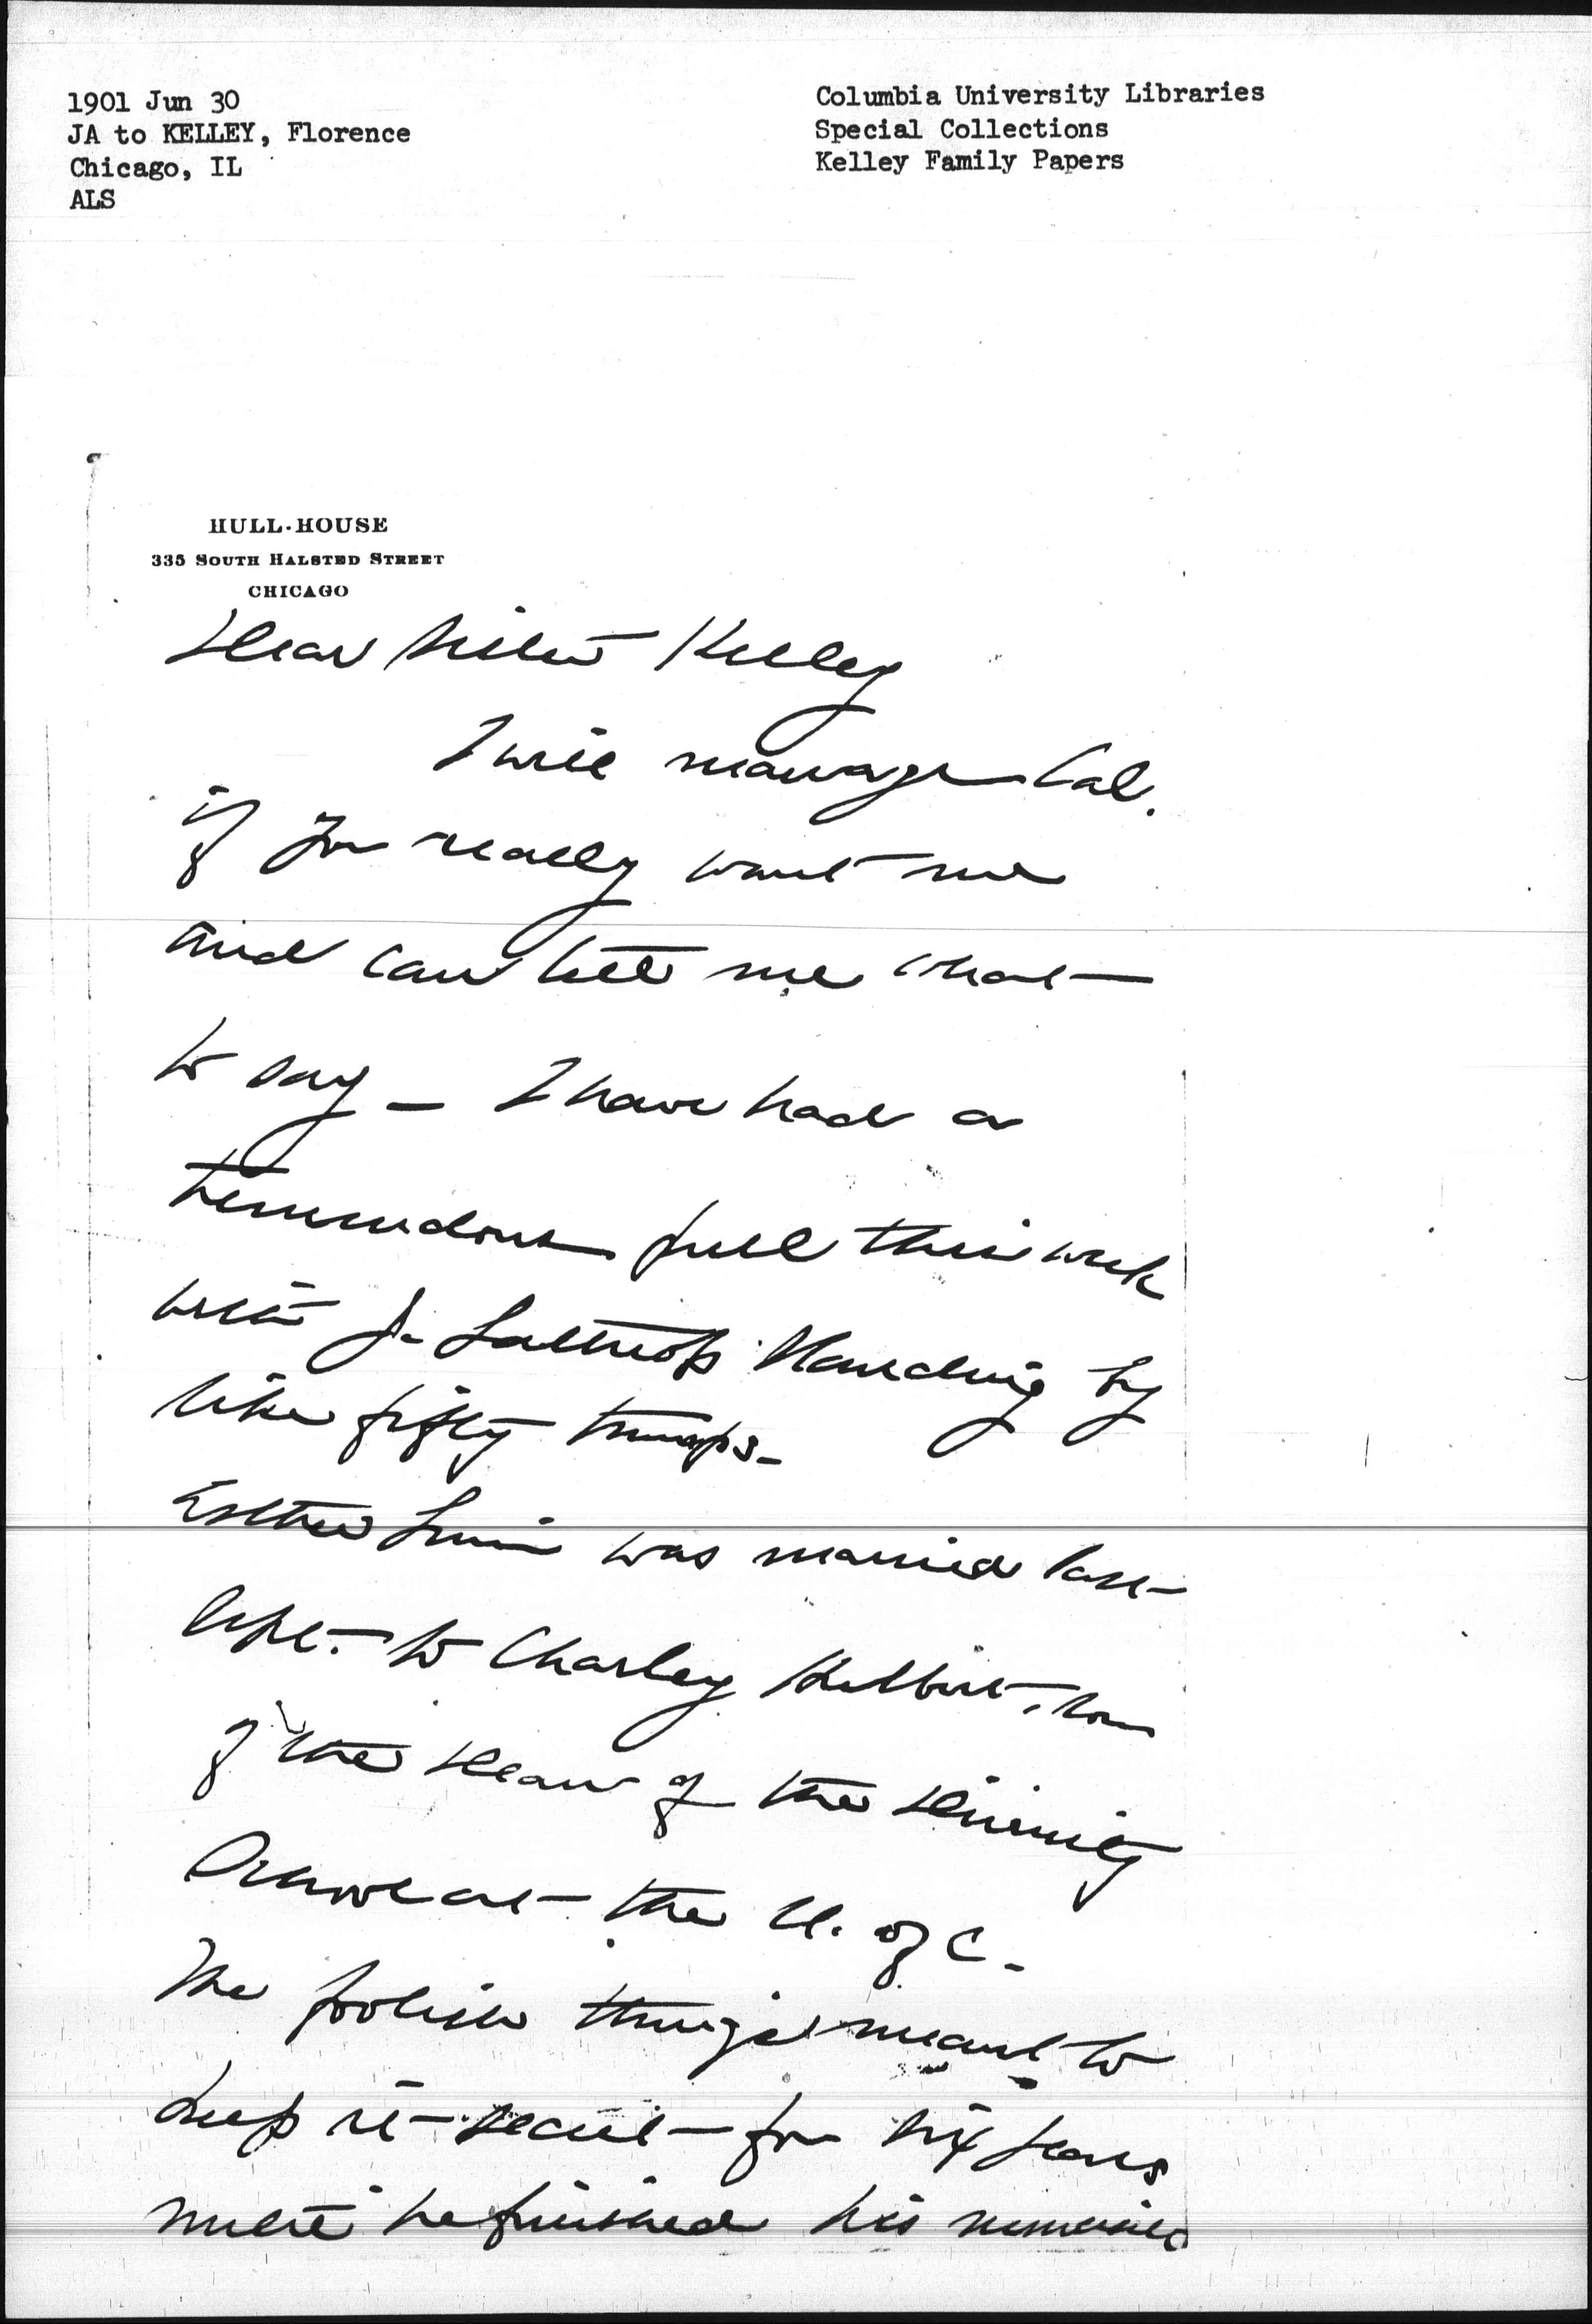 1901 Jun 30
JA to KELLEY, Florence
Chicago, IL
ALS
Columbia University Libraries
Special Collections
Kelley Family Papers
HULL-HOUSE
335 SOUTH HALSTED STREET
CHICAGO
Dear Sister Kelley
I will manage Cal.
if you really want me
and can tell me what
to say — I have had a
tremendous pull this week
with J. Lathrop standing by
like fifty trumps —
Esther was married last
Sept. to Charley Hulbert, son
of the Dean of the Divinity
at the U. of C.
The foolish things meant to
keep it secret for six years
until he finished his